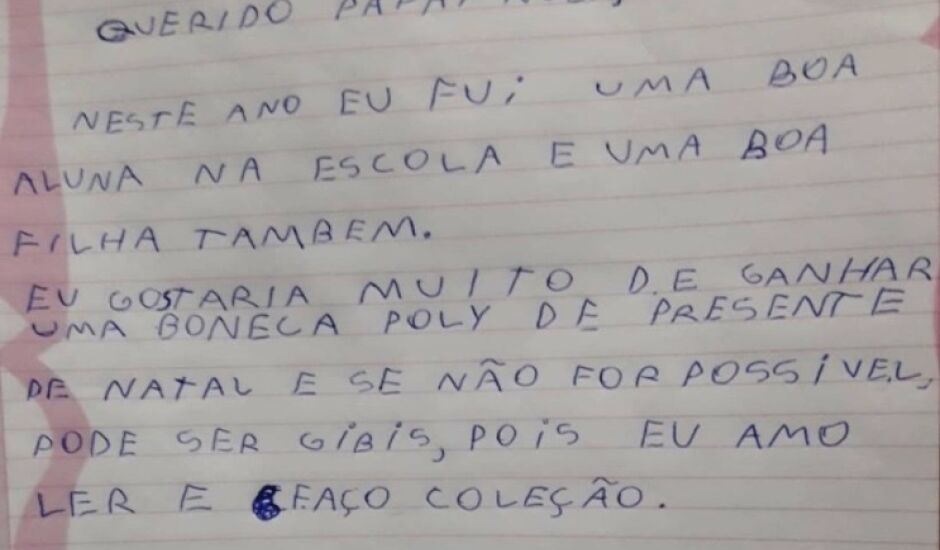 QUERIDO PAPAI NOEL,
NESTE ANO EU FUi UMA BOA
ALUNA NA ESCOLA E UMA BOA
FILHA TAMBEM.
EU GOSTARIA MUITO DE GANHAR
UMA BONECA POLY DE PRESENTE
DE NATAL E SE NÃO FOR POSSíVEL,
PODE SER GiBiS, POiS EU AMO
LER E FAÇO COLEÇÃO.